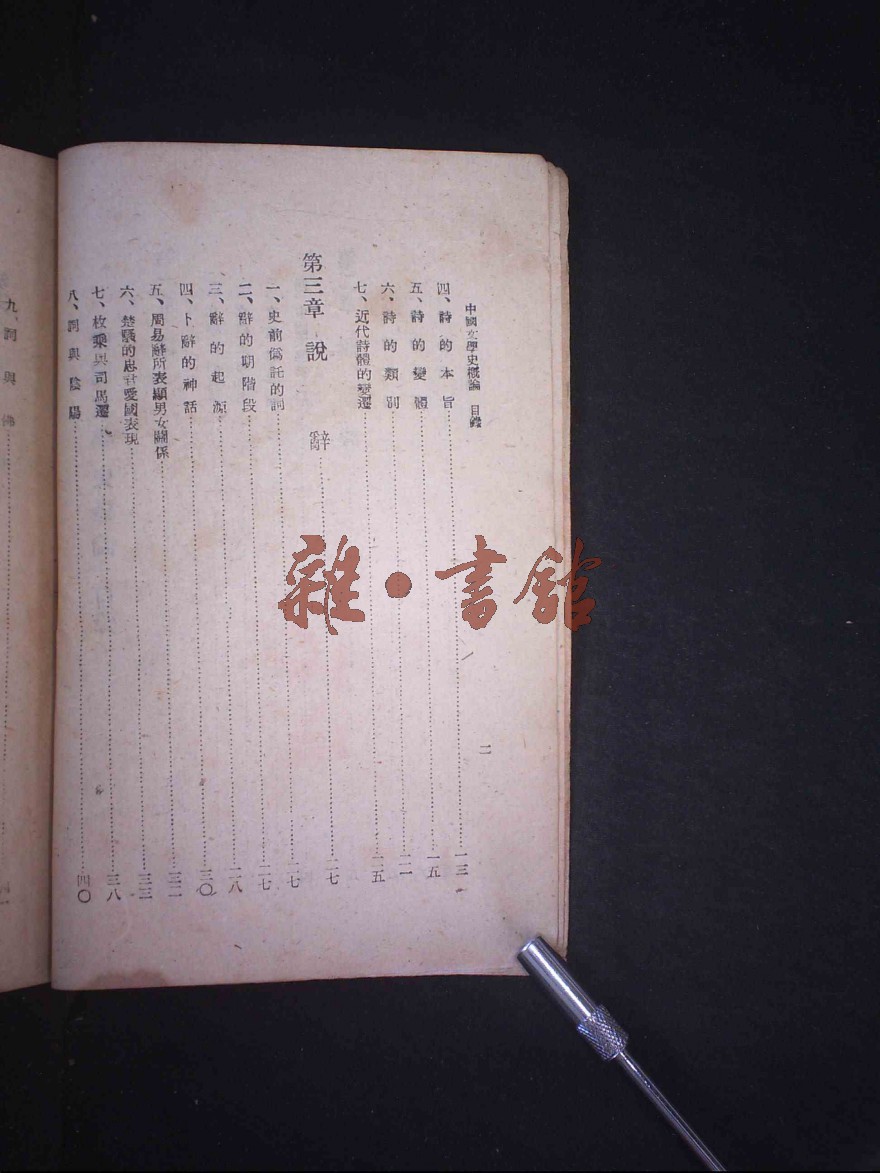 中國文學史概論　目錄
二
四、詩的本旨……一三
五、詩的變體……一五
六、詩的類別……二一
七、近代詩體的變遷……二五
第三章　說　辭……二七
一、史前僞託的詞……二七
二、辭的期階段……二七
三、辭的起源……二八
四、卜辭的神話……三〇
五、周易辭所表顯男女關係……三二
六、楚騷的忠君愛國表現……三三
七、枚乘與司馬遷……三八
八、詞與陰陽……四〇
九、詞與佛……
雜·書館